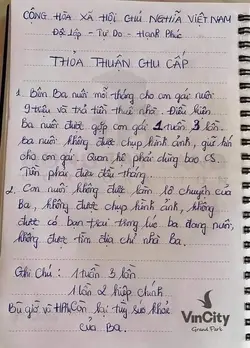 CỘNG HÒA XÃ HỘI CHỦ NGHĨA VIỆT NAM
Độc Lập - Tự Do - Hạnh Phúc
THỎA THUẬN CHU CẤP
1. Bên Ba nuôi mỗi tháng cho con gái nuôi
9 triệu và trả tiền thuê nhà. Điều kiện
Ba nuôi được gặp con gái 1 tuần 3 lần.
ba nuôi không được chụp hình ảnh, giữ kín
cho con gái. Quan hệ phải dùng bao CS.
Tiền phải đưa đầu tháng.
2. Con nuôi không được làm lộ chuyện của
Ba, không được chụp hình ảnh, không
được có bạn trai trong lúc ba đang nuôi,
không được tìm địa chỉ nhà Ba.
Ghi Chú: 1 tuần 3 lần
1 lần 2 hiệp chính
Bù giờ và Hiệp Còn lại tùy sức khỏe
của Ba.
VinCity
Grand Park